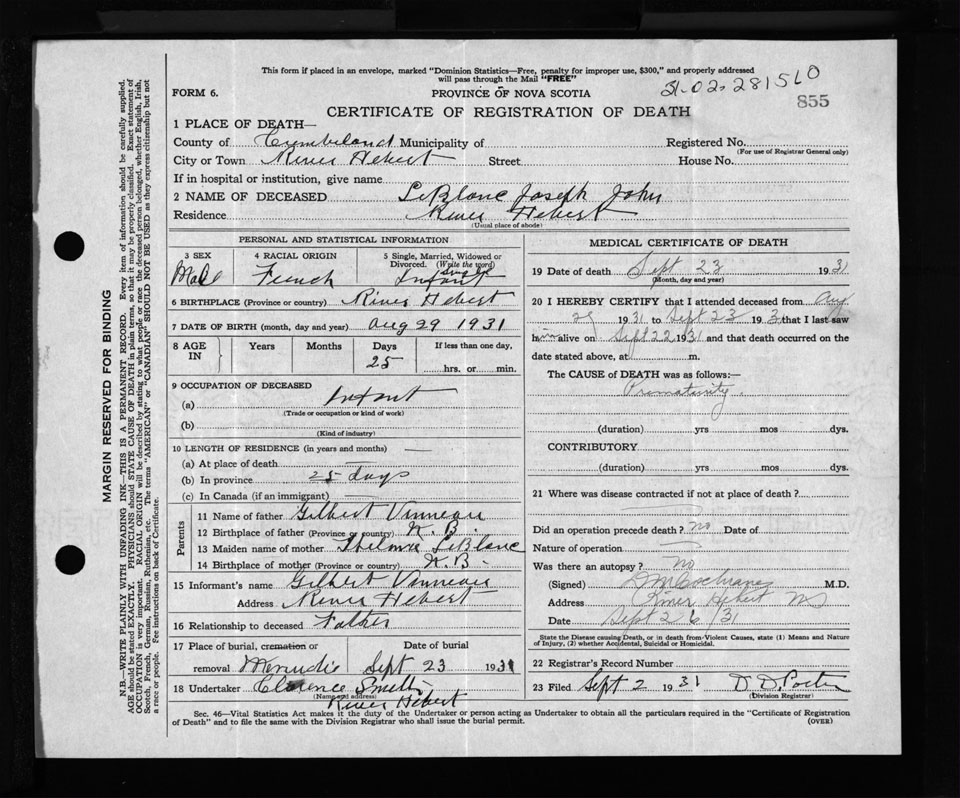 This form if placed in an envelope, marked "Dominion Statistics—Free, penalty for improper use, $300," and properly addressed
will pass through the Mail "FREE"
FORM 6.
PROVINCE OF NOVA SCOTIA
855
CERTIFICATE OF REGISTRATION OF DEATH
1 PLACE OF DEATH—
County of Cumberland Municipality of Registered No.
(For use of Registrar General only)
City or Town River Hebert Street House No.
If in hospital or institution, give name
2 NAME OF DECEASED LeBlanc Joseph John
Residence River Hebert
(Usual place of abode)
PERSONAL AND STATISTICAL INFORMATION
3 SEX 4 RACIAL ORIGIN 5 Single, Married, Widowed or Divorced. (Write the word)
Male French Single Infant
6 BIRTHPLACE (Province or country) River Hebert
7 DATE OF BIRTH (month, day and year) Aug 29 1931
8 AGE IN Years Months Days If less than one day,
25 hrs. or min.
9 OCCUPATION OF DECEASED
(a) Infant
(Trade or occupation or kind of work)
(b)
(Kind of industry)
10 LENGTH OF RESIDENCE (in years and months)
(a) At place of death
(b) In province 25 days
(c) In Canada (if an immigrant)
Parents
11 Name of father Gilbert Vinneau
12 Birthplace of father (Province or country) N. B.
13 Maiden name of mother Thelma LeBlanc
14 Birthplace of mother (Province or country) N. B.
15 Informant's name Gilbert Vinneau
Address River Hebert
16 Relationship to deceased Father
17 Place of burial, cremation or Date of burial
removal Minudie Sept 23 1931
18 Undertaker Clarence Smith
(Name and address)
River Hebert
MEDICAL CERTIFICATE OF DEATH
19 Date of death Sept 23 1931
(Month, day and year)
20 I HEREBY CERTIFY that I attended deceased from Aug
29 1931 to Sept 23 193 that I last saw
him alive on Sept 22 1931 and that death occurred on the
date stated above, at m.
The CAUSE of DEATH was as follows:—
Prematurity.
(duration) yrs mos dys.
CONTRIBUTORY
(duration) yrs mos dys.
21 Where was disease contracted if not at place of death?
Did an operation precede death? no Date of
Nature of operation
Was there an autopsy? no
(Signed) D M Cochrane M.D.
Address River Hebert NS
Date Sept 26/31
State the Disease causing Death, or in death from Violent Causes, state (1) Means and Nature
of Injury, (2) whether Accidental, Suicidal or Homicidal.
22 Registrar's Record Number
23 Filed Sept 2 1931 D. D. Porter
(Division Registrar)
Sec. 46—Vital Statistics Act makes it the duty of the Undertaker or person acting as Undertaker to obtain all the particulars required in the "Certificate of Registration
of Death" and to file the same with the Division Registrar who shall issue the burial permit.
(OVER)
MARGIN RESERVED FOR BINDING
N.B.—WRITE PLAINLY WITH UNFADING INK—THIS IS A PERMANENT RECORD. Every item of information should be carefully supplied.
AGE should be stated EXACTLY. PHYSICIANS should STATE CAUSE OF DEATH in plain terms, so that it may be properly classified. Exact statement of
OCCUPATION is very important. RACIAL ORIGIN will be described by stating to what people or race the deceased person belonged, whether English, Irish,
Scotch, French, German, Russian, Ruthenian, etc. The terms "AMERICAN" or "CANADIAN" SHOULD NOT BE USED as they express citizenship but not
a race or people. Fee instructions on back of Certificate.